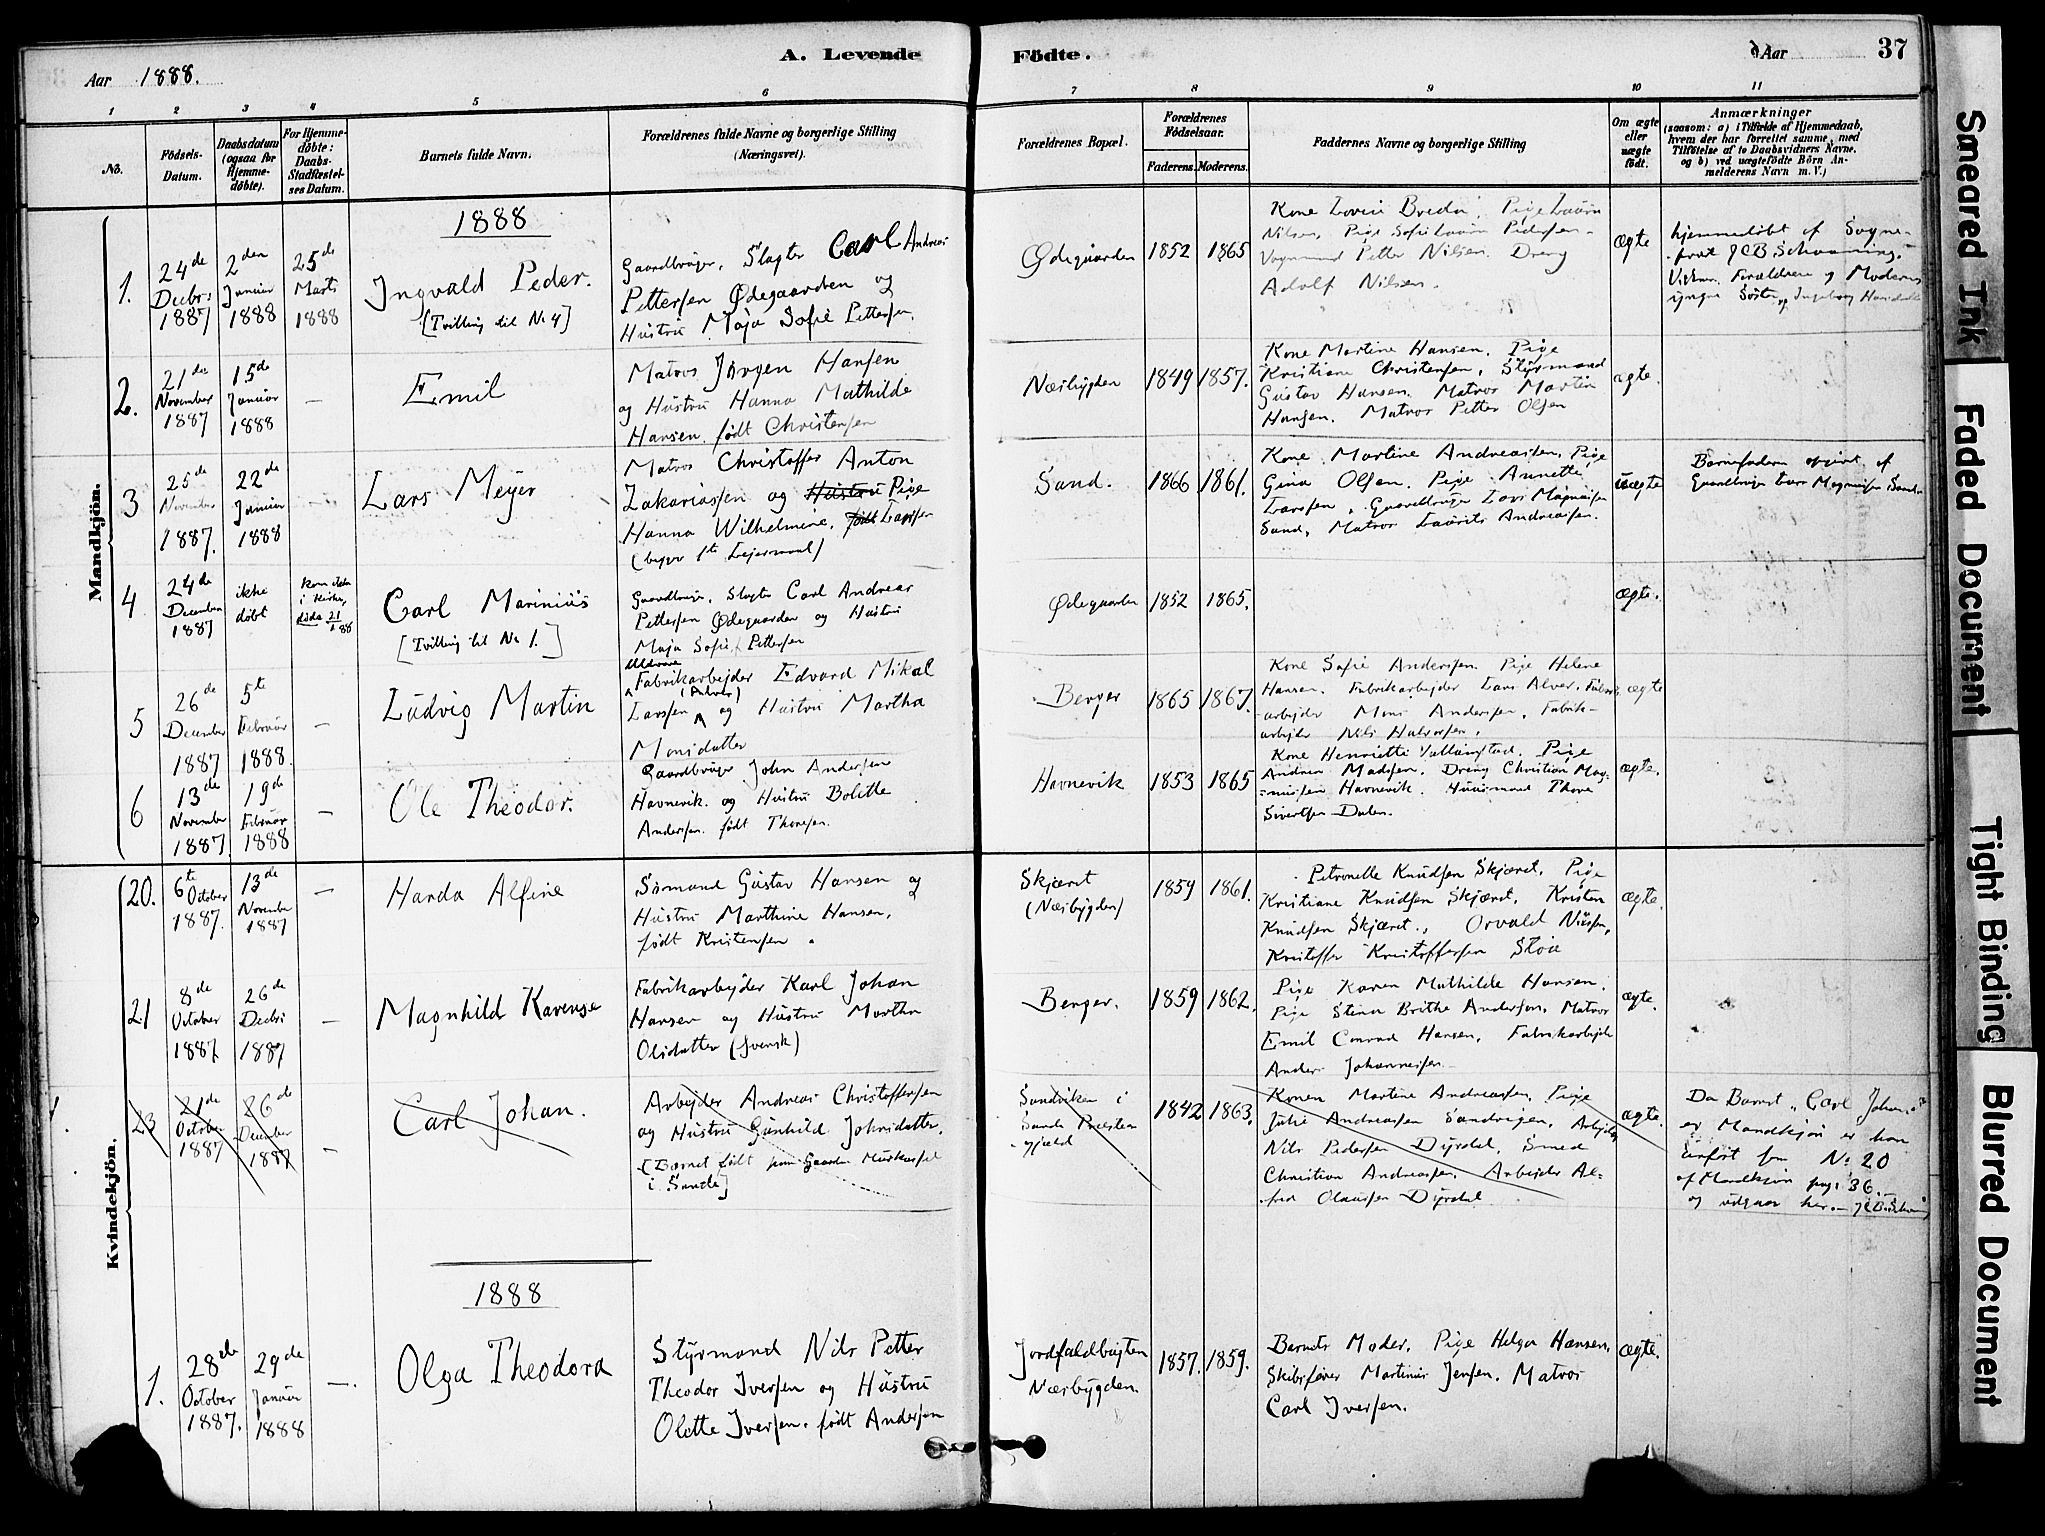 A. Levende Födte.
Aar 1888.
Aar 37
1 2 3 4 5 6 7 8 9 10 11
No.
Födsels-Datum.
Daabsdatum (ogsaa for Hjemme-döbte).
For Hjemme-döbte: Daabs-Stadfæstel-ses Datum.
Barnets fulde Navn.
Forældrenes fulde Navne og borgerlige Stilling
(Næringsvei).
Forældrenes Bopæl.
Forældrenes Födselsaar.
Faderens. Moderens.
Faddernes Navne og borgerlige Stilling
Om ægte eller uægte födt.
Anmærkninger
(saasom: a) i Tilfælde af Hjemmedaab,
hvem der har forrettet samme, med
Tilföielse af to Daabsvidners Navne,
og b) ved uægtefödte Börn An-
melderens Navn m. V.)
Mandkjön.
1888
1.
24de Decbr. 1887
2den Januar 1888
25de Marts 1888
Ingvald Peder.
[Tvilling til No 4]
Gaardbruger, Slagter Carl Andreas
Pettersen Ødegaarden og
Hustru Maja Sofie Pettersen.
Ødegaarden
1852 1865
Kone Lovise Breda, Pige Laura
Nilsen, Pige Sofie Laura Pedersen
Petter Nilsen. Dreng
Adolf Nilsen.
ægte
hjemmedöbt af Sogne-
præst JCB Schaaning.
Vidner. Forældrene og Moderens
yngre Söster Ingeborg
2.
21de November 1887
15de Januar 1888
—
Emil
Matros Jörgen Hansen
og Hustru Hanna Mathilde
Hansen. födt Christensen
Nærbygden
1849 1857.
Kone Martine Hansen. Pige
Kristiane Christensen, Styrmand
Gustav Hansen. Matros Martin
Hansen. Matros Petter Olsen
ægte.
3
25de November 1887.
22de Januar 1888
—
Lars Meyer
Matros Christoffer Anton
Zakariassen og Hustru Pige
Hanna Wilhelmine, födt Larssen
(begges 1ste Leiermaal)
Sand.
1866 1861.
Kone Martine Andreassen, Pige
Gina Olsen. Pige Annette
Larssen, Gaardbruger Lars Magnussen
Sand, Matros Laurits Andreassen.
uægte
Barnefaderen opgivet af
Gaardbruger Lars Magnussen Sand
4
24de December 1887
ikke döbt
kom ikke i Kirke, döde 21/1 88
Carl Marinius
[Tvilling til No 1.]
Gaardbruger, Slagter Carl Andreas
Pettersen Ødegaarden og Hustru
Maja Sofie Pettersen
Ødegaarden
1852 1865.
ægte.
5
26de December 1887
5te Februar 1888.
—
Ludvig Martin
Uldvare
Fabrikarbejder Edvard Mikal
Larssen (Alver) og Hustru Martha
Monsdatter
Berger
1865 1867.
Kone Sofie Andersen. Pige Helene
Hansen. Fabrikarbejder Lars Alver. Fabrik-
arbejder Mons Andersen, Fabrik-
arbejder Nils Halvorsen.
ægte
6
13de November 1887.
19de Februar 1888
—
Ole Theodor.
Gaardbruger John Andersen
Havnevik. og Hustru Bolette
Andersen. födt Thoresen.
Havnevik
1853 1865
Kone Henriette Pige
Andrea Madsen. Dreng Christian Mag-
nussen Havnevik. Huusmand Thore
Sivertsen Dalen.
ægte.
Kvindekjön.
20.
6te October 1887.
13de November 1887
—
Harda Alfine
Sömand Gustav Hansen og
Hustru Marthine Hansen,
födt Kristensen.
Skjæret
(Nærbygden)
1859 1861.
Petronelle Knudsen Skjæret, Pige
Kristiane Knudsen Skjæret, Kristen
Knudsen Skjæret., Orvald Nilsen,
Kristoffer Kristoffersen Stoa
ægte.
21
8de October 1887
26de Decbr 1887
—
Magnhild Karense
Fabrikarbejder Karl Johan
Hansen og Hustru Martha
Olsdatter (Svensk)
Berger.
1859 1862.
Pige Karen Mathilde Hansen.
Pige Stina Brithe Andersen, Matros
Emil Conrad Hansen, Fabrikarbejder
Anders Johannesen
ægte.
23
21de October 1887
26de December 1887
—
Carl Johan.
Arbejder Andreas Christoffersen
og Hustru Gunhild Johnsdatter.
[Barnet födt paa Gaarden
i Sande]
Sandviken i
Sande Præste-
gjæld
1842 1863.
Konen Martine Andreassen, Pige
Julie Andreassen Sandvigen, Arbejder
Nils Pedersen Dyrdal, Smed
Christian Andreassen, Arbejder Al-
fred Olaussen Dyrdal
ægte.
Da Barnet „Carl Johan"
er Mandkjön er han
anfört som No 20
af Mandkjön pag: 36.
og udgaar her. — JCB Schaaning
1888
1.
28de October 1887.
29de Januar 1888
—
Olga Theodora
Styrmand Nils Petter
Theodor Iversen og Hustru
Olette Iversen. födt Andersen
Jordfaldbugten
Nærbygden.
1857. 1859.
Barnets Moder, Pige Helga Hansen,
Skibsförer Martinus Jensen, Matros
Carl Iversen.
ægte.
Smeared Ink
Faded Document
Tight Binding
Blurred Document